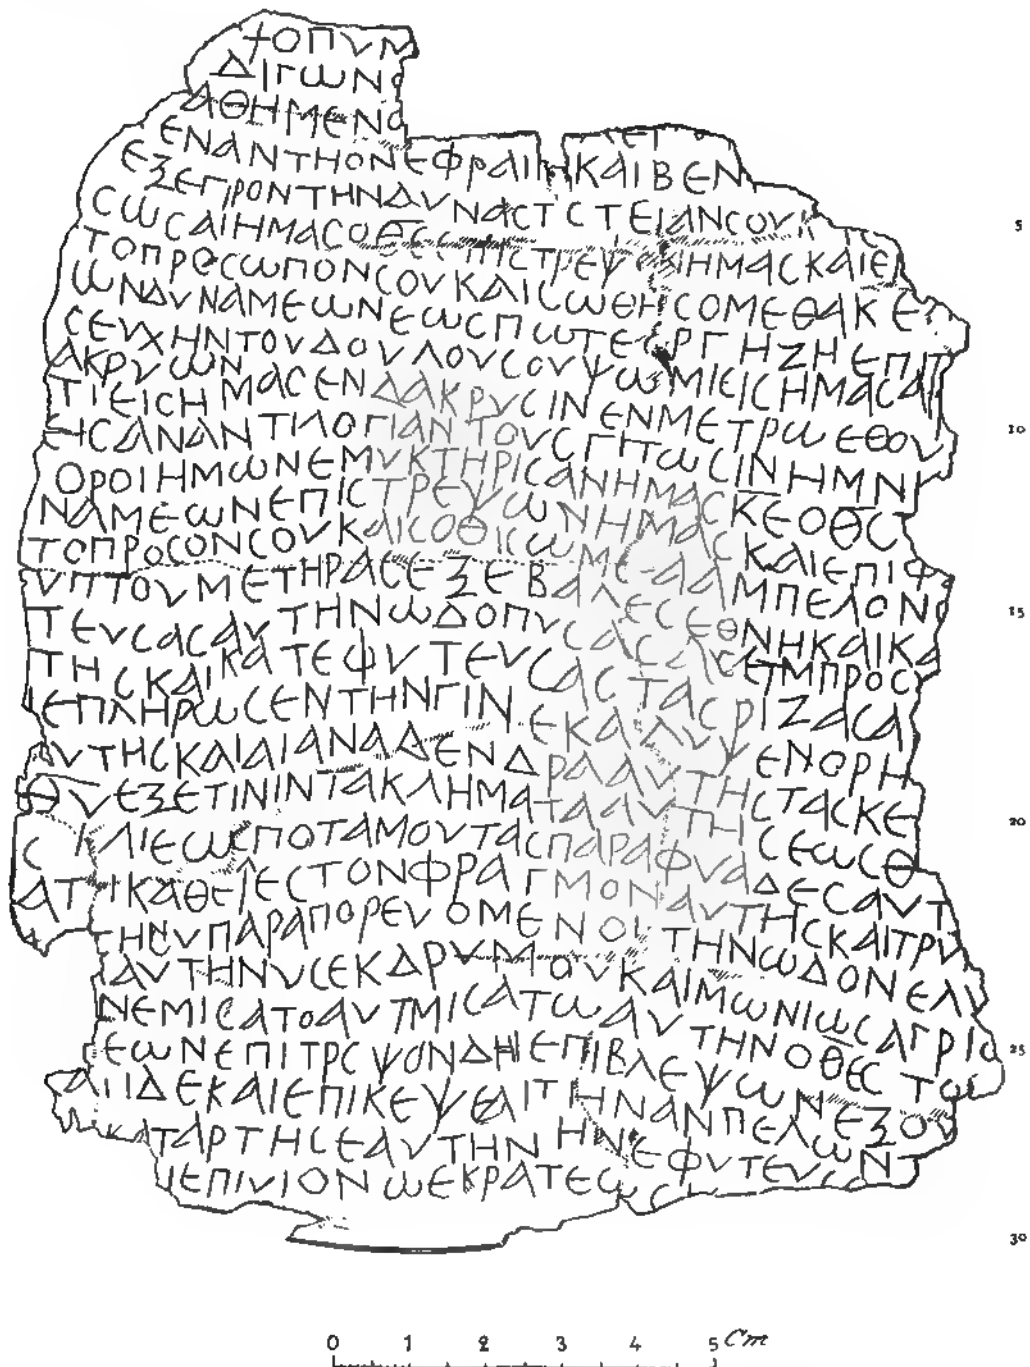 ΤΟΠΥΜ
ΔΙΓΩΝΟ
ΑΘΗΜΕΝΟ ΧΕΙ
ΕΝΑΝΤΗΟΝΕΦΡΑΙΗΚΑΙΒΕΝ
ΕΞΕΓΙΡΟΝΤΗΝΔΥΝΑϹΤϹΤΕΙΑΝϹΟΥΚ
ϹΩϹΑΙΗΜΑϹΟΘΕϹϹΠΙϹΤΡΕΨΟΝΗΜΑϹΚΑΙΕΙ
ΤΟΠΡΟϹΩΠΟΝϹΟΥΚΑΙϹΩΘΗϹΟΜΕΘΑΚΕ
ΩΝΔΥΝΑΜΕΩΝΕΩϹΠΩΤΕΟΡΓΗΖΗΕΠΙΤ
ϹΕΥΧΗΝΤΟΥΔΟΥΛΟΥϹΟΥΨΩΜΙΕΙϹΗΜΑϹΑΡ
ΑΚΡΥΩΝ
ΤΙΕΙϹΗΜΑϹΕΝΔΑΚΡΥϹΙΝΕΝΜΕΤΡΩΕΘΟΥ
ΗϹΑΝΑΝΤΙΛΟΓΙΑΝΤΟΥϹΓΗΤΩϹΙΝΗΜΝΚ
ΟΡΟΙΗΜΩΝΕΜΥΚΤΗΡΙϹΑΝΗΜΑϹΚΕΟΘϹ
ΝΑΜΕΩΝΕΠΙϹΤΡΕΨΩΝΗΜΑϹΚΑΙΕΠΙΦ
ΤΟΠΡΟϹΟΝϹΟΥΚΑΙϹΟΘΙϹΩΜΕΘΑΑΜΠΕΛΟΝ
ΥΠΤΟΥΜΕΤΗΡΑϹΕΞΕΒΑΛΕϹΕΘΝΗΚΑΙΚΑ
ΤΕΥϹΑϹΑΥΤΗΝΩΔΟΠΥϹΑϹΑϹΕΤΜΠΡΟϹ
ΤΗϹΚΑΙΚΑΤΕΦΥΤΕΥϹΑϹΤΑϹΡΙΖΑϹΑ
ΙΕΠΛΗΡΩϹΕΝΤΗΝΓΙΝΕΚΑΛΥΨΕΝΟΡΗ
ΑΥΤΗϹΚΑΙΑΙΑΝΑΔΕΝΔΡΑΑΥΤΗϹΤΑϹΚΕ
ΘΥΕΞΕΤΙΝΙΝΤΑΚΛΗΜΑΤΑΑΥΤΗϹΕΩϹΘ
Ϲ ΚΛΙΕΩϹΠΟΤΑΜΟΥΤΑϹΠΑΡΑΦΥΑΔΕϹΑΥΤ
ΑΤΙΚΑΘΕΙΕϹΤΟΝΦΡΑΓΜΟΝΑΥΤΗϹΚΑΙΤΡΥ
ΤΗΝΥΠΑΡΑΠΟΡΕΥΟΜΕΝΟΙΤΗΝΩΔΟΝΕΛΥ
ΙΑΥΤΗΝΥϹΕΚΔΡΥΜΟΥΚΑΙΜΩΝΙΩϹΑΓΡΙΟ
ΝΕΜΙϹΑΤΟΑΥΤΜΙϹΑΤΩΑΥΤΗΝΟΘΕϹΤΩ
ΕΩΝΕΠΙΤΡϹΨΟΝΔΗΙΕΠΙΒΛΕΨΩΝΕΞΟΥ
ΑΙΙΔΕΚΑΙΕΠΙΚΕΨΕΑΙΤΗΝΑΝΠΕΛΩΝ
ΚΑΤΑΡΤΗϹΕΑΥΤΗΝΗΝΕΦΥΤΕΥϹ
ΙΕΠΙΥΙΟΝΩΕΚΡΑΤΕΩϹ
5
10
15
20
25
30
0 1 2 3 4 5 Cm